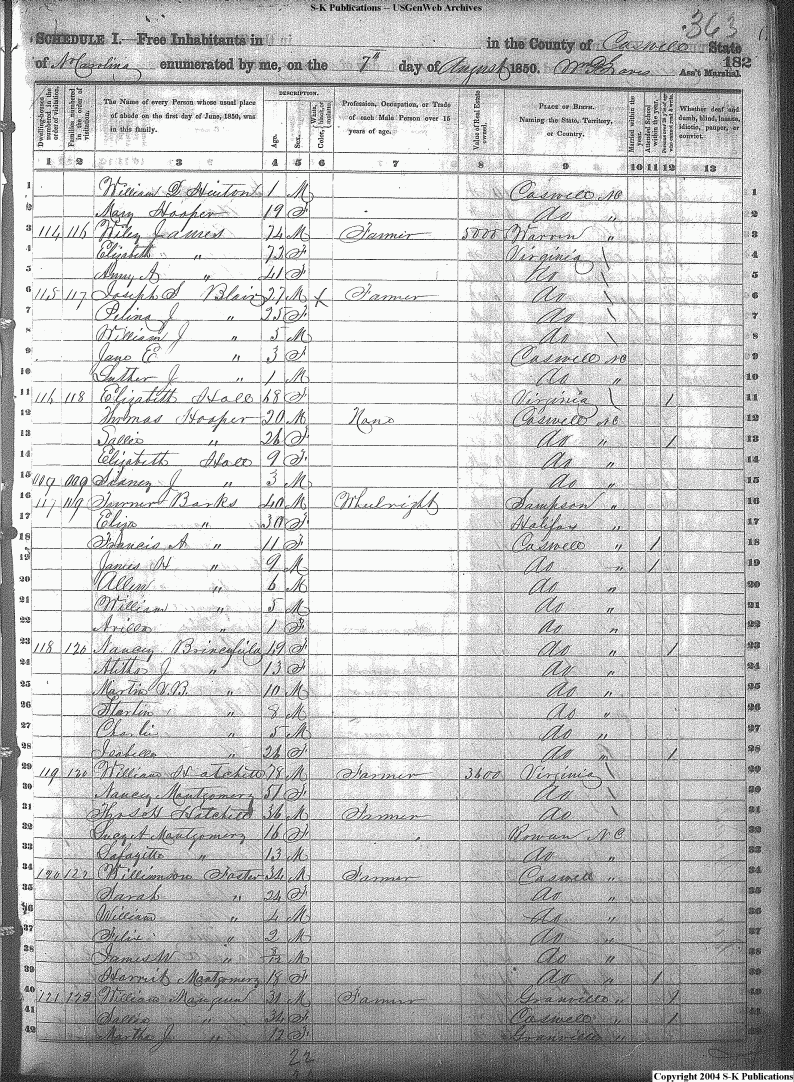 S-K Publications – USGenWeb Archives
363
SCHEDULE I. – Free Inhabitants in in the County of Caswell State
of N. Carolina enumerated by me, on the 7th day of August 1850. Ass't Marshal. 182
Dwelling-houses numbered in the order of visitation.
Families numbered in the order of visitation.
The Name of every Person whose usual place of abode on the first day of June, 1850, was in this family.
DESCRIPTION.
Age.
Sex.
Color, White, black, or mulatto.
Profession, Occupation, or Trade of each Male Person over 15 years of age.
Value of Real Estate owned.
PLACE OF BIRTH. Naming the State, Territory, or Country.
Married within the year.
Attended School within the year.
Whether deaf and dumb, blind, insane, idiotic, pauper, or convict.
1 2 3 4 5 6 7 8 9 10 11 12 13
1 William D. Hinton 1 M Caswell NC 1
2 Mary Hooper 19 F do " 2
3 114 116 Wiley James 74 M Farmer 5000 Warren " 3
4 Elizabeth " 73 F Virginia \ 4
5 Amy A " 41 F do \ 5
6 115 117 Joseph S Blair 27 M Farmer do \ 6
7 J " 25 F do \ 7
8 William J " 5 M do \ 8
9 Jane E " 3 F Caswell NC 9
10 Luther J " 1 M do " 10
11 116 118 Elizabeth Hall 68 F Virginia \ 1 11
12 Thomas Hooper 20 M None Caswell NC 12
13 Sallie " 26 F do " 1 13
14 Elizabeth Hall 9 F do " 14
15 J " 3 M do " 15
16 117 119 Turner Banks 40 M Wheelright Sampson " 16
17 Eliza " 30 F Halifax " 17
18 Francis A " 11 F Caswell " 1 18
19 James H " 9 M do " 1 19
20 Allen " 6 M do " 20
21 William " 5 M do " 21
22 " 1 F do " 22
23 118 120 Nancy 49 F do " 1 23
24 J " 13 F do " 24
25 Martin V.B. " 10 M do " 25
26 " 8 M do " 26
27 Charlie " 5 M do " 27
28 Isabella " 26 F do " 1 28
29 119 William Hatchett 78 M Farmer 3600 Virginia \ 29
30 Nancy Montgomery 51 F do \ 30
31 Hatchett 36 M Farmer do \ 31
32 Lucy A Montgomery 16 F Rowan N C 32
33 Lafayette " 13 M do " 33
34 120 122 Williamson Foster 34 M Farmer Caswell " 34
35 Sarah " 24 F do " 35
36 William " 4 M do " 36
37 Felix " 2 M do " 37
38 James W " M do " 38
39 Harriet Montgomery 18 F do " 1 39
40 121 123 William 31 M Farmer Granville " 1 40
41 Sallie " 34 F Caswell " 1 41
42 Martha J " 12 F Granville " 42
22
Copyright 2004 S-K Publications